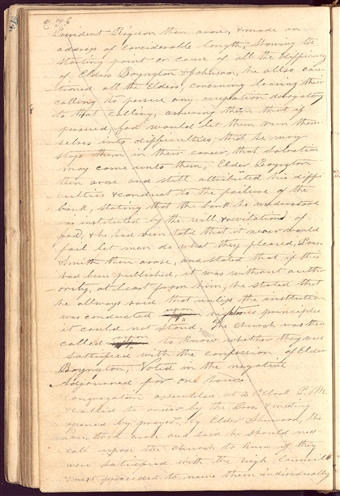 President Rigdon then arose, & made an
address of considerable length, showing the
starting point or cause of all the difficulty
of Elders Boynton & Johnson, he also cau-
tioned all the Elders, concerning leaving their
calling to persue any occupation derogatory
to that calling, assuring them that if
persued, God would let them run them
selves into difficulties, that he may
stop them in their career, that salvation
may come unto them, Elder Boynton
then arose and still attributed his diffi
culties & conduct to the failure of the
bank, stating that the bank he understood
was instituted by the will & revelations of
God, & he had been told that it never would
fail let men do what they pleased, Pres.
Smith then arose, and stated that if this
had been published, it was without auth-
ority, at least from him, he stated that
he allways said that unless the institution
was conducted upon righteous principles
it could not stand, The church was then
called upon to know whether they were
sattisfied with the confession of Elder
Boynton, Voted in the negative
Adjourned for one hour.
Congregation assembled at 2 o'clock P.M.
called to order by the Pres. & meeting
opened by prayer, by Elder
then arose and said he should next
call upon the church to know if they
were sattisfied with the High Council &
next proceeded to name them individually